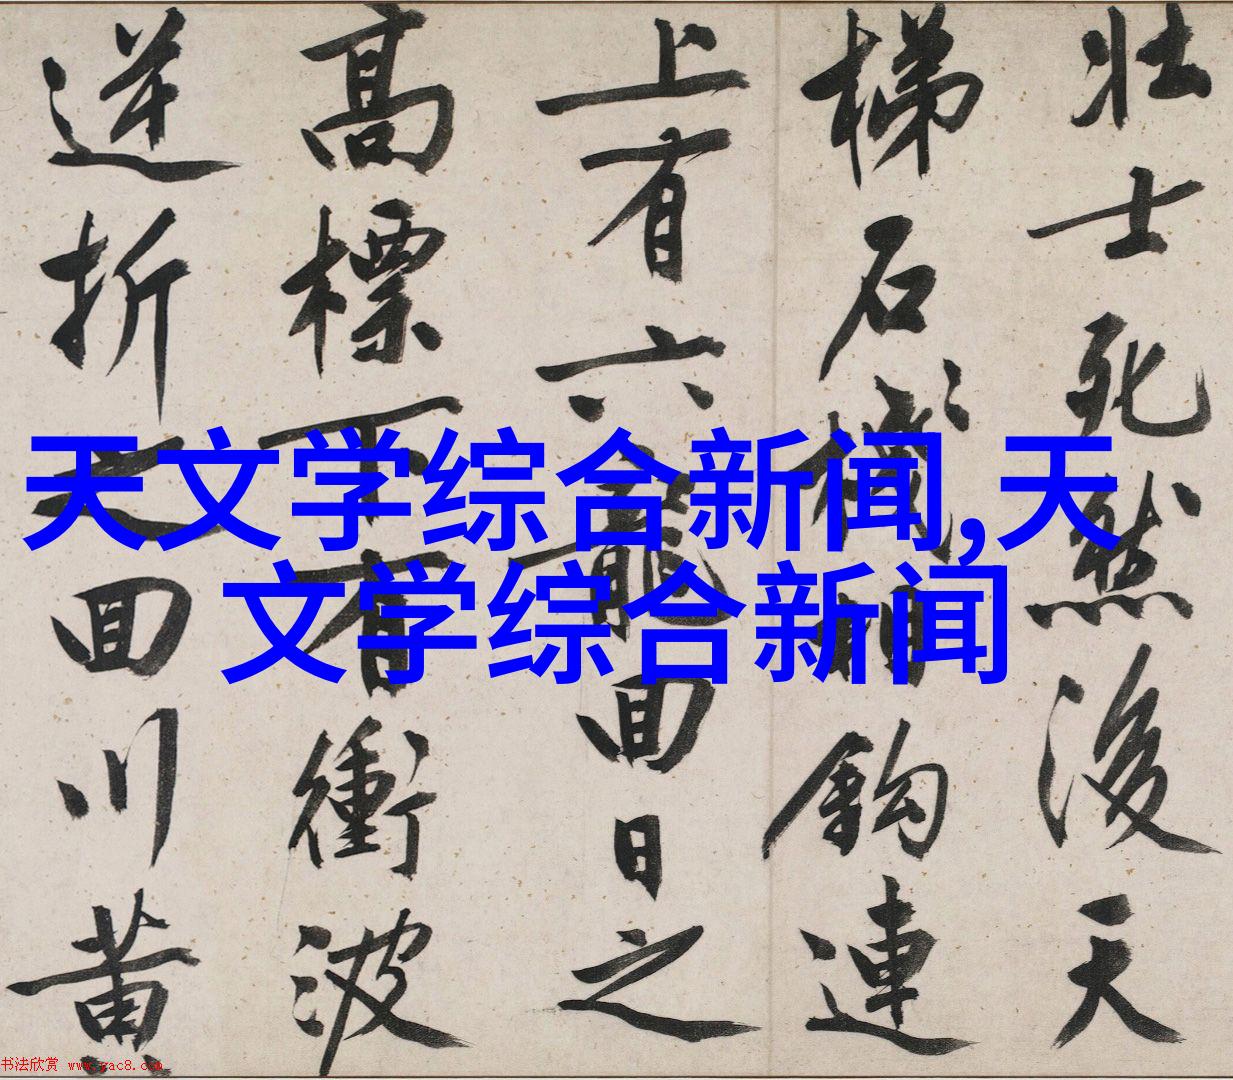 壮士死然後天
梯石棧相鈎連
上有六龍回日之
高標下有衝波
逆折之回川黄
天文学综合新闻,天
文学综合新闻
书法欣赏 www.yac8.com